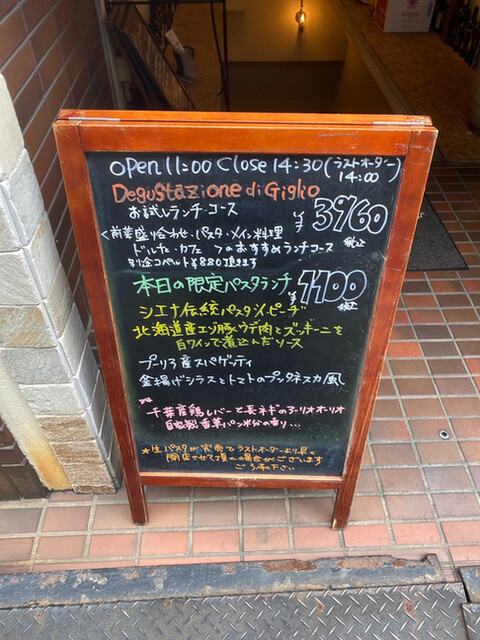 open 11:00 Close 14:30 (ラストオーダー 14:00
Degustazione di Giglio
お試しランチ・コース ¥3960 税込
<前菜盛り合わせ・パスタ・メイン料理
ドルチェ・カフェ >のおすすめランチコース
別途コペルト¥880頂きます
本日の限定パスタランチ ¥1100 税込
シエナ伝統パスタ"ピーチ"
北海道産エゾ豚ウデ肉とズッキーニを
白ワインで煮込んだソース
プーリア産スパゲッティ
釜揚げシラスとトマトのプッタネスカ風
千葉産鶏レバーと長ネギのアーリオオーリオ
自家製香草パン粉の香り...
★生パスタが完売でラストオーダーより早く
閉店させて頂く場合がございます
ご了承下さい